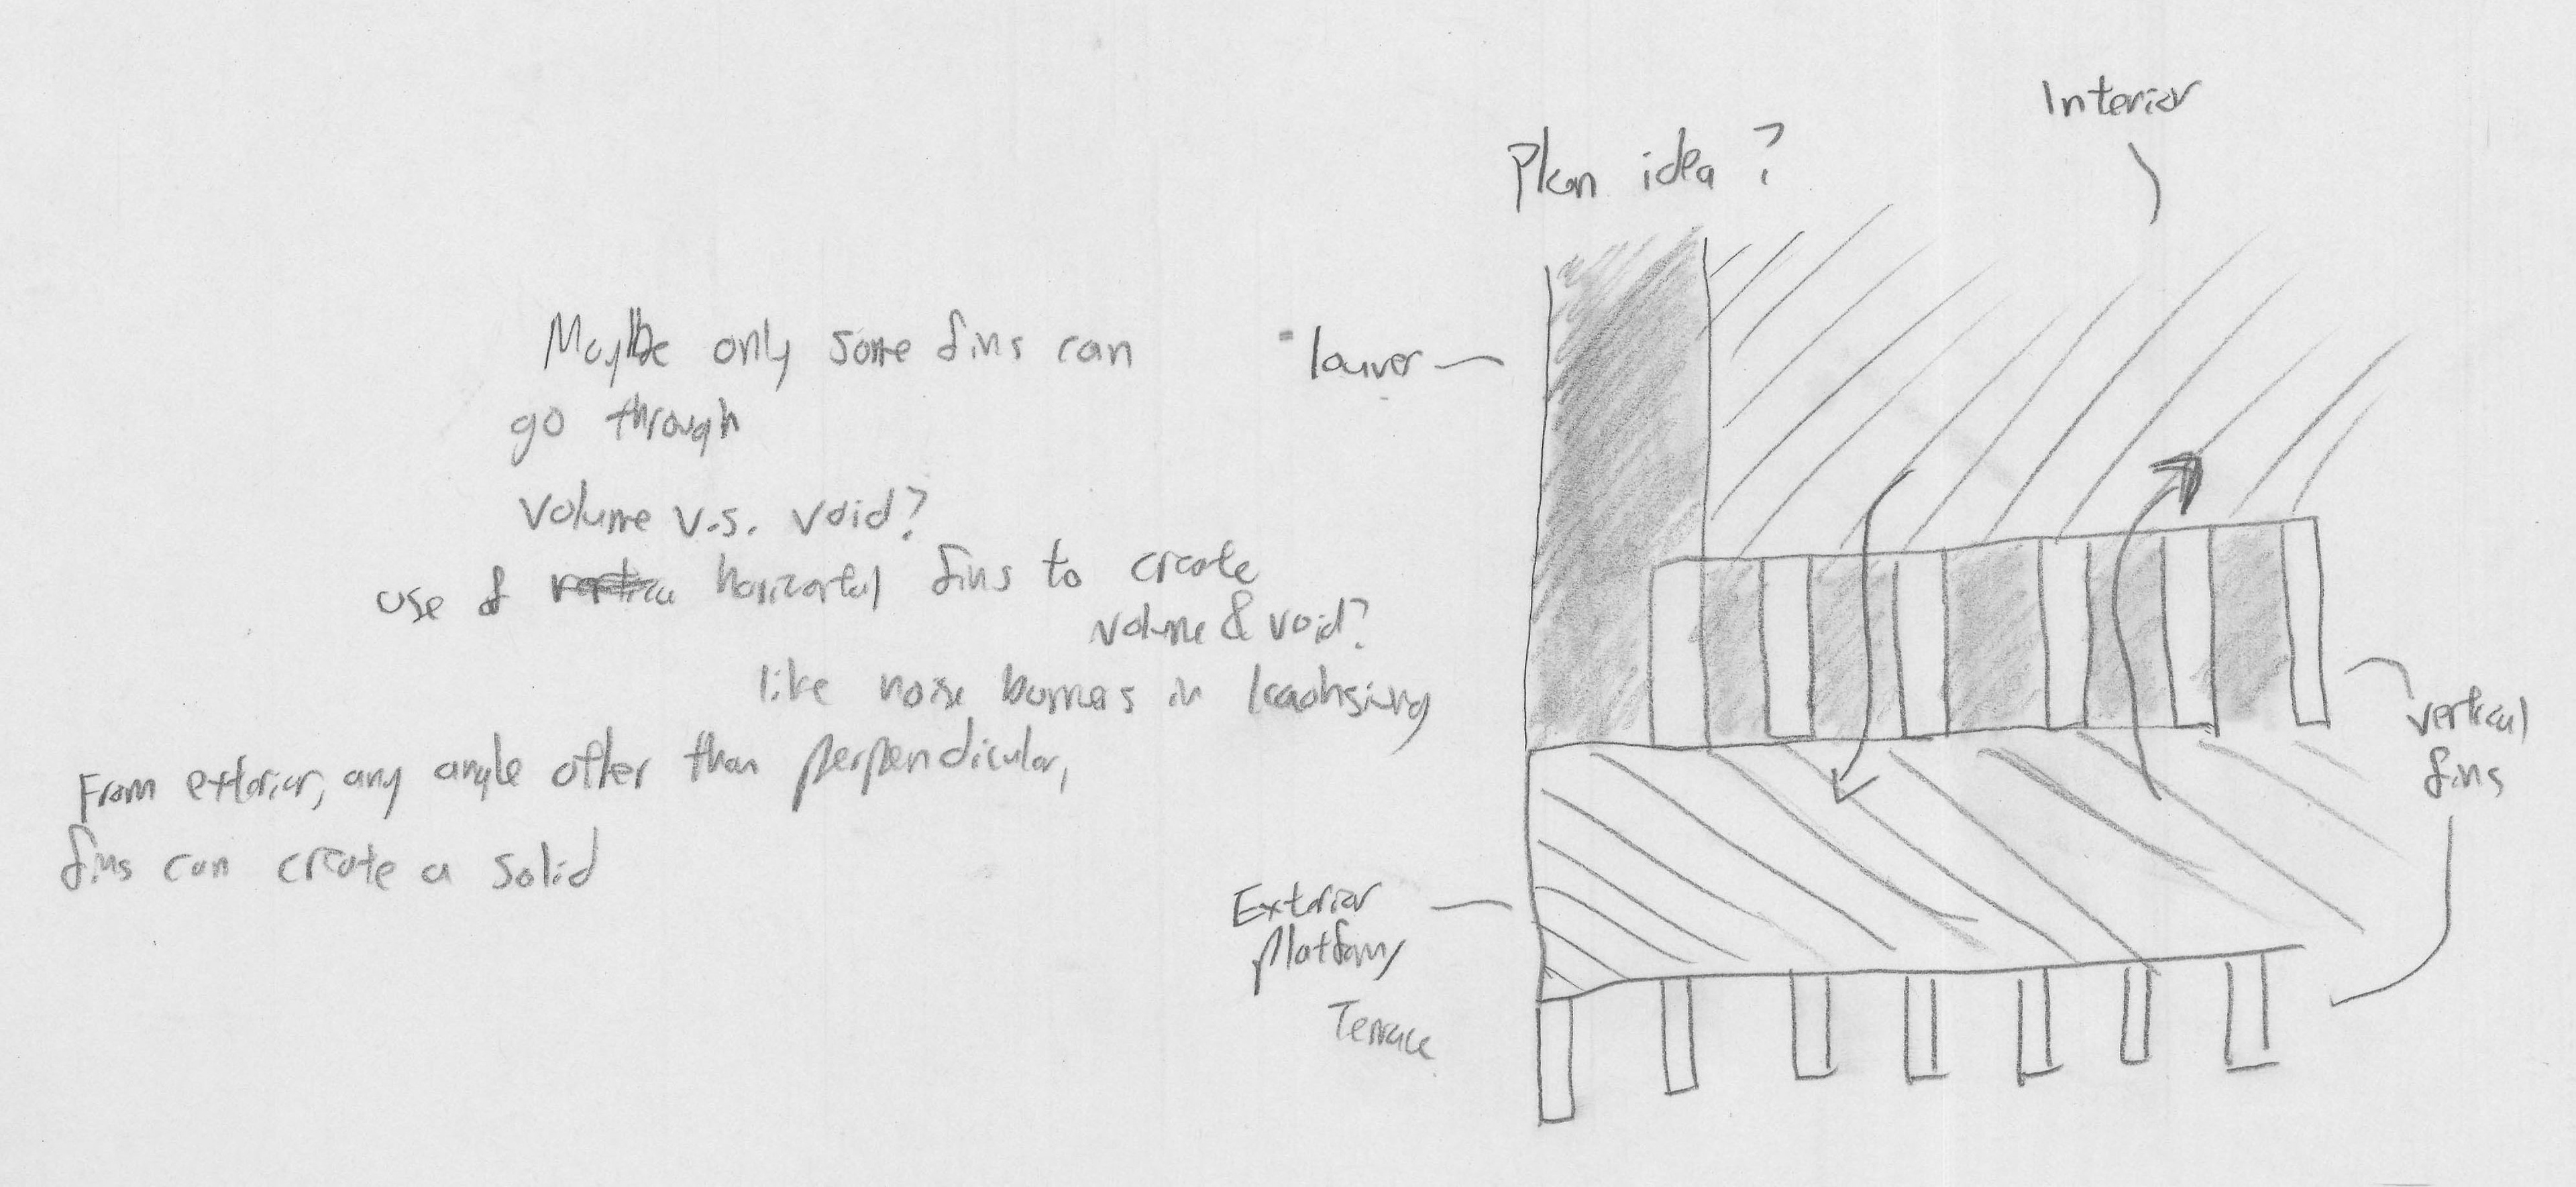 Interior
Plan idea?
Maybe only some fins can
go through
louver
volume v.s. void?
use of vertica horizontal fins to create
volume & void?
like noise barriers in kaohsiung
vertical
fins
From exterior, any angle other than perpendicular,
fins can create a solid
Exterior
platform/
Terrace